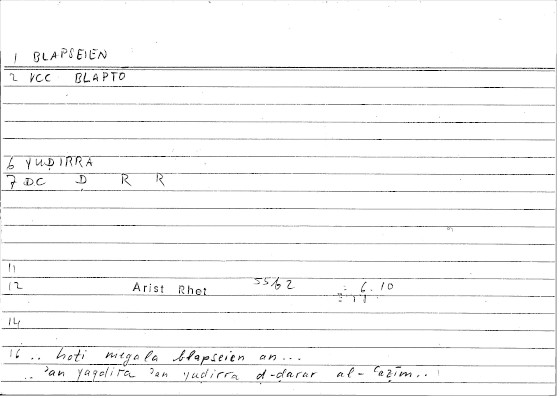 1 BLAPSEIEN
2 VCC BLAPTO
6 YUḌIRRA
7 DC Ḍ R R
11
12 Arist Rhet 55b2 : 6.10
14
16 .. hoti megala blapseien an...
.. ʾan yaqdira ʾan yuḍirra ḍ-ḍarar al-ʿaẓīm..